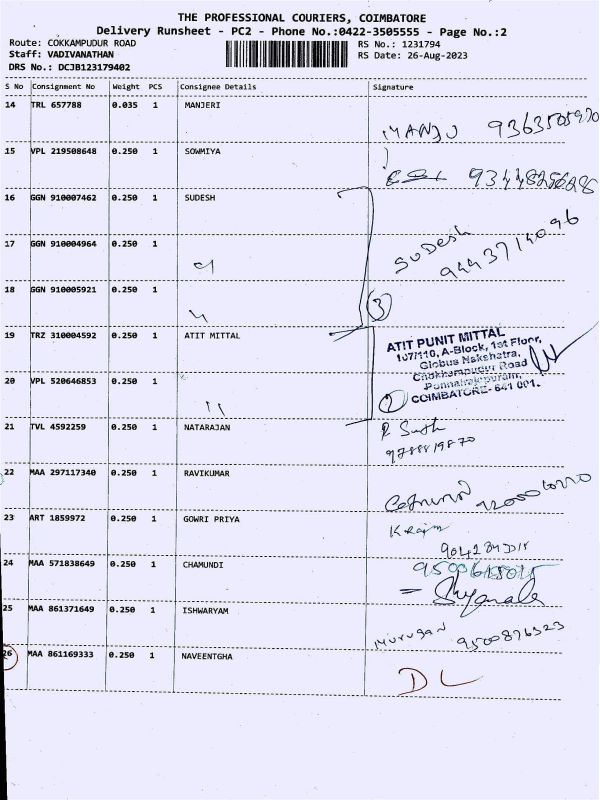 THE PROFESSIONAL COURIERS, COIMBATORE
Delivery Runsheet - PC2 - Phone No.:0422-3505555 - Page No.:2
Route: COKKAMPUDUR ROAD RS No.: 1231794
Staff: VADIVANATHAN RS Date: 26-Aug-2023
DRS No.: DCJB123179402
S No Consignment No Weight PCS Consignee Details Signature
14 TRL 657788 0.035 1 MANJERI
MANJU 9363505970
15 VPL 219508648 0.250 1 SOWMIYA
9344825628
16 GGN 910007462 0.250 1 SUDESH
SUDesh 9443714096
17 GGN 910004964 0.250 1
18 GGN 910005921 0.250 1
3
19 TRZ 310004592 0.250 1 ATIT MITTAL
ATIT PUNIT MITTAL
107/110, A-Block, 1st Floor,
Globus Nakshatra,
Chokkampudur Road
Ponnaiahrajapuram,
COIMBATORE- 641 001.
20 VPL 520646853 0.250 1 "
2
21 TVL 4592259 0.250 1 NATARAJAN
9788819870
22 MAA 297117340 0.250 1 RAVIKUMAR
23 ART 1859972 0.250 1 GOWRI PRIYA
24 MAA 571838649 0.250 1 CHAMUNDI
25 MAA 861371649 0.250 1 ISHWARYAM
Murugan 9500876323
26 MAA 861169333 0.250 1 NAVEENTGHA
DL